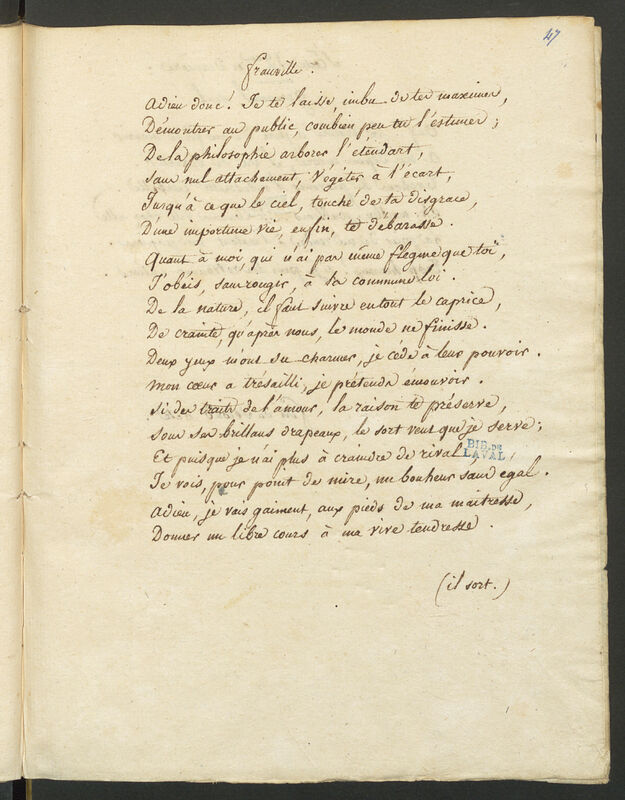 47
Franville.
Adieu donc! Je te laisse, imbu de tes maximes,
Démontrer au public, combien peu tu l'estimes;
De la philosophie arborer l'étendart,
Sans nul attachement, végéter à l'écart,
Jusqu'à ce que le ciel, touché de ta disgrace,
D'une importune vie, enfin, te débarasse.
Quant à moi, qui n'ai pas même flegme que toi,
J'obéis, sans rougir, à la commune loi.
De la nature, il faut suivre en tout le caprice,
De crainte, qu'après nous, le monde ne finisse.
Deux yeux m'ont su charmer, je cède à leur pouvoir.
Mon cœur a trésailli, je prétends émouvoir.
Si des traits de l'amour, la raison te préserve,
Sous ses brillans drapeaux, le sort veut que je serve;
Et puisque je n'ai plus à craindre de rival,
BIB. DE
LAVAL
Je vois, pour point de mire, un bonheur sans egal.
Adieu, je vais gaiment, aux pieds de ma maitresse,
Donner un libre cours à ma vive tendresse.
(il sort.)